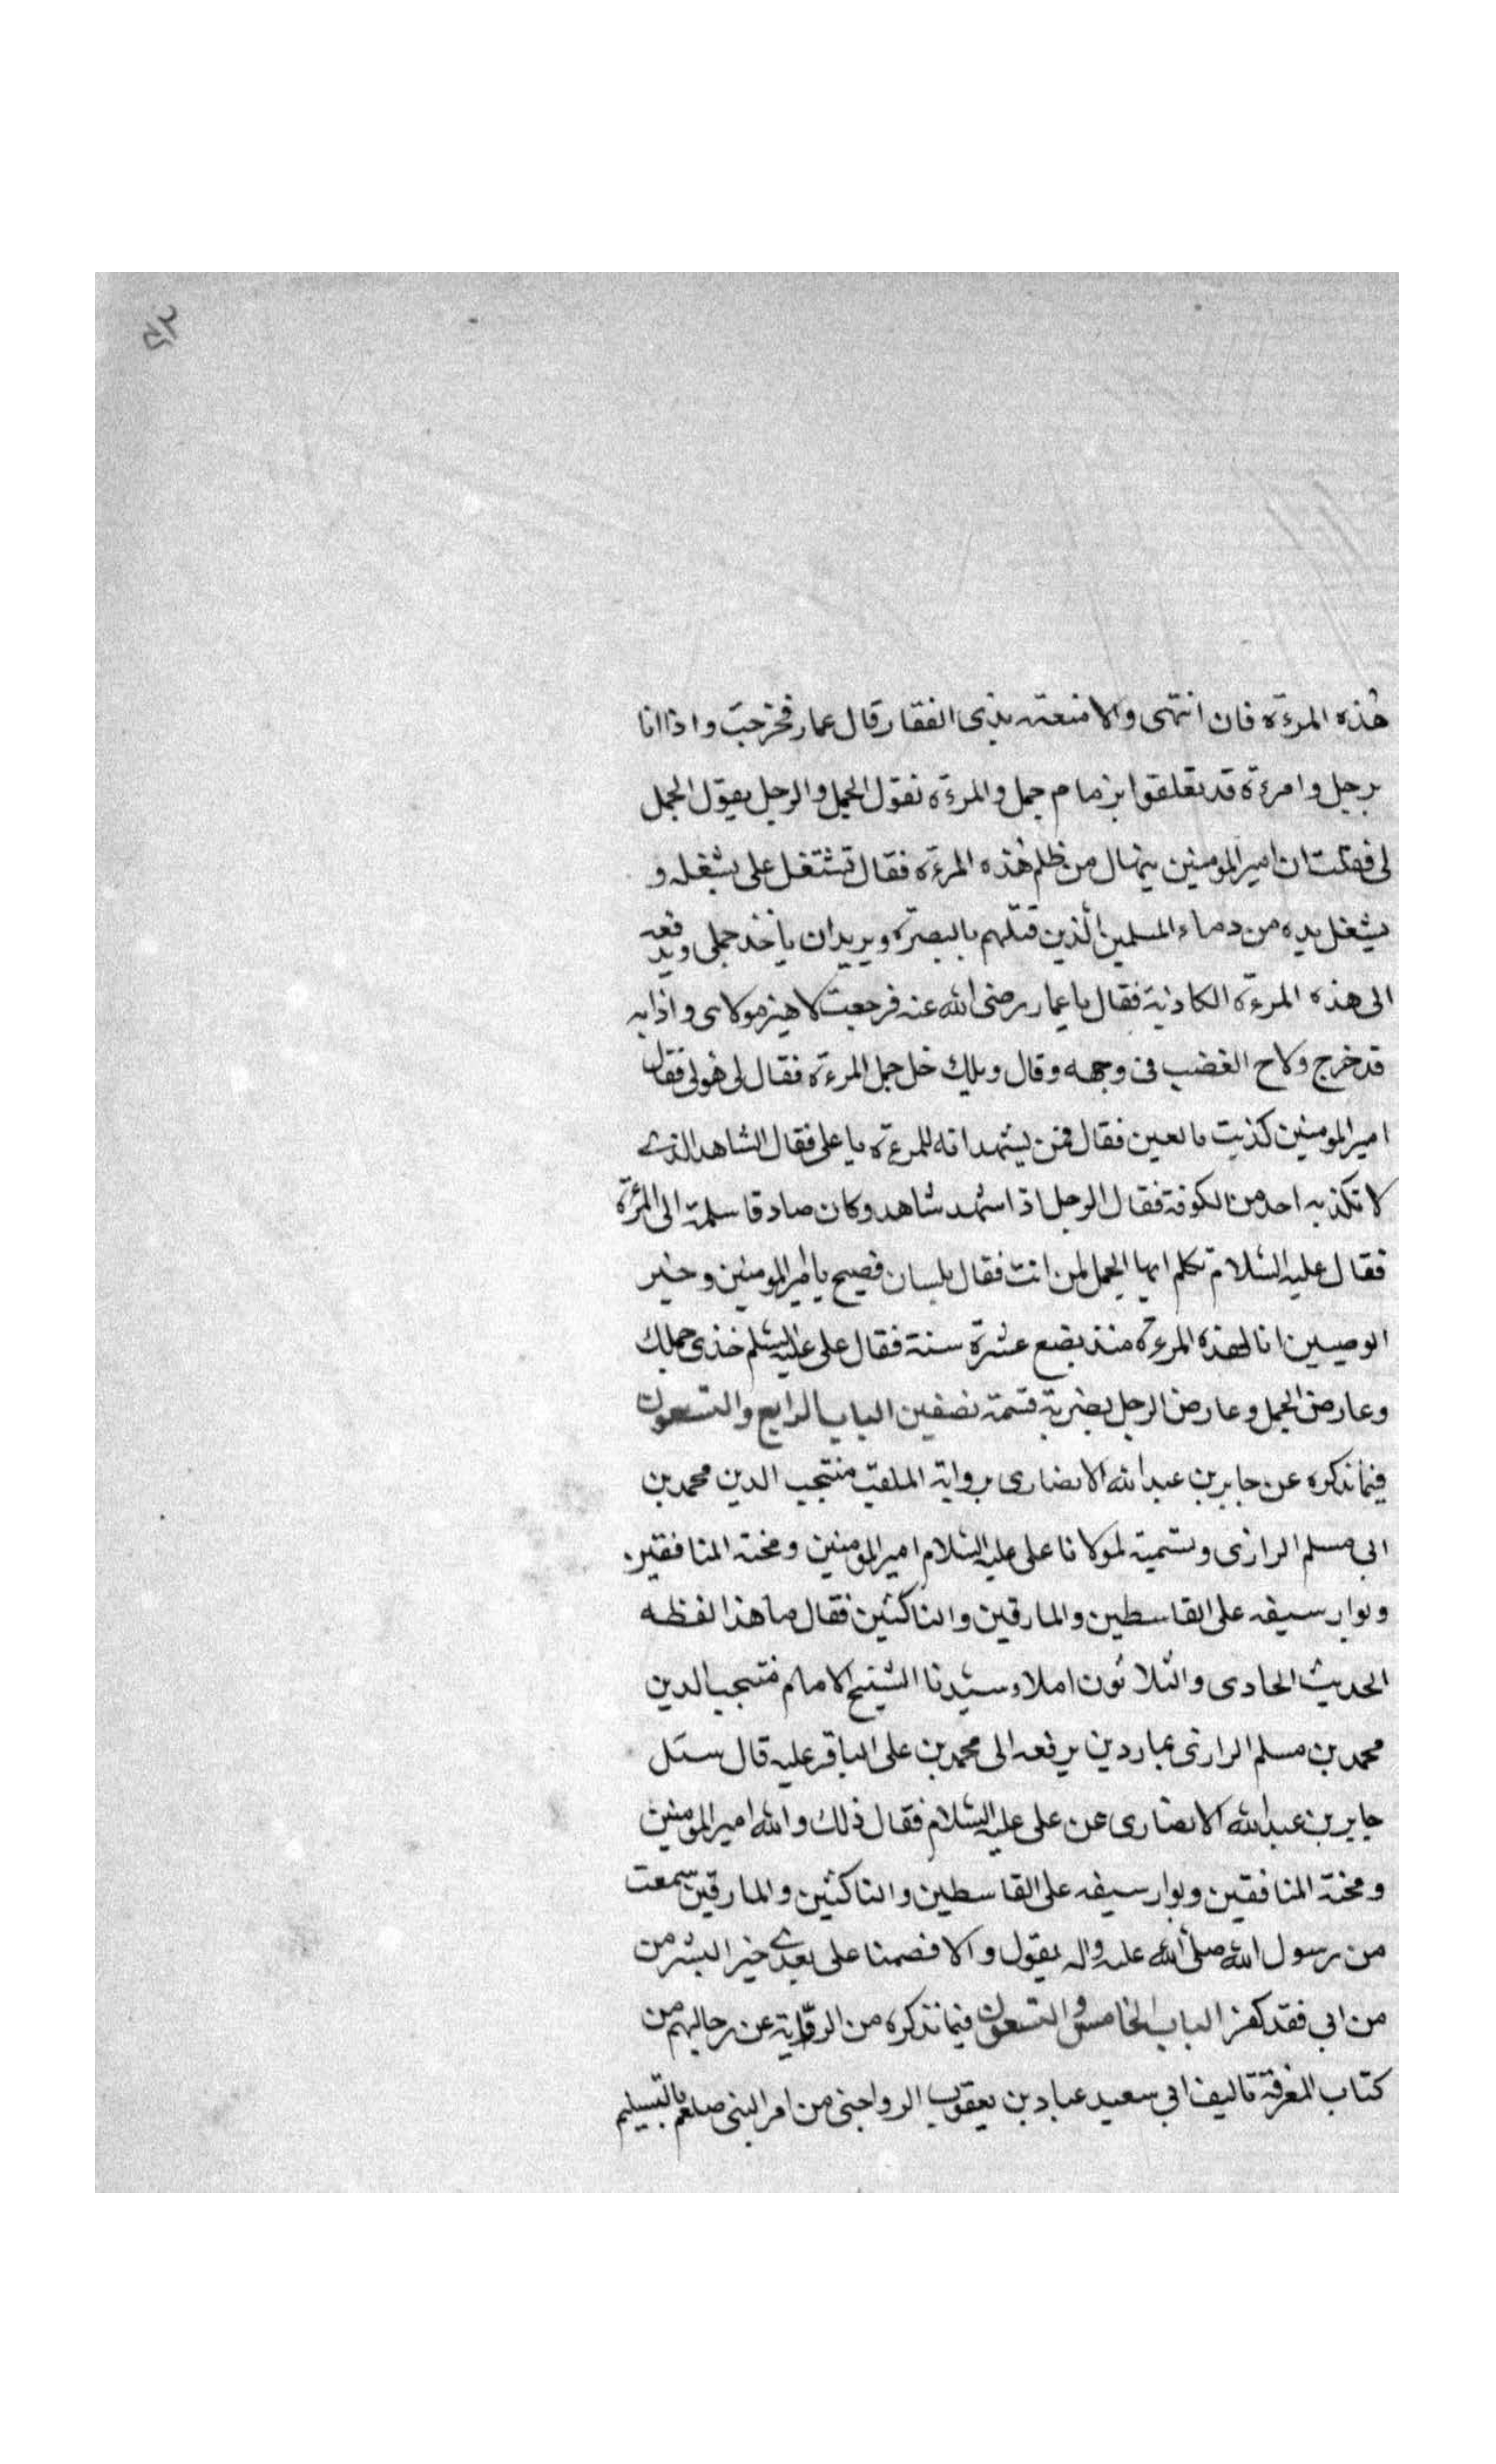 هذه المرءة فان انتهى والا منعته بذى الفقار قال عمار فخرجت واذا انا
برجل وامرءة قد تعلقوا بزمام جمل والمرءة تقول الجمل والرجل يقول الجمل
لى فقلت ان امير المومنين ينهاك من ظلم هذه المرءة فقال تشتغل على بشغله و
يشغل يده من دماء المسلمين الذين قتلهم بالبصرة ويريد ان ياخذ جملى ويدفعه
الى هذه المرءة الكاذبة فقال يا عمار رضى الله عنه فرجعت لاخبر مولاى واذا به
قد خرج ولاح الغضب فى وجهه وقال ويلك خل جمل المرءة فقال لى هو لى فقال
امير المومنين كذبت يا لعين فقال فمن يشهد انه للمرءة يا على فقال الشاهد الذى
لا تكذبه احد من الكوفة فقال الرجل اذا شهد شاهد وكان صادقا سلمته الى المرئة
فقال عليه السلام تكلم ايها الجمل لمن انت فقال بلسان فصيح يا امير المومنين وخير
الوصيين انا لهذه المرءة منذ بضع عشرة سنة فقال على عليه السلم خذى جملك
وعارض الجمل وعارض الرجل بضربة قسمته نصفين الباب الرابع والتسعون
فيما نذكره عن جابر بن عبد الله الانصارى برواية الملقب منتجب الدين محمد بن
ابى مسلم الرازى وتسميته لمولانا على عليه السلام امير المومنين ومحنة المنافقين
وبوار سيفه على القاسطين والمارقين والناكثين فقال ما هذا لفظه
الحديث الحادى والثلاثون املاء سيدنا الشيخ الامام منتجب الدين
محمد بن مسلم الرازى بماردين يرفعه الى محمد بن على الباقر عليه قال سئل
جابر بن عبد الله الانصارى عن على عليه السلام فقال ذلك والله امير المومنين
ومحنة المنافقين وبوار سيفه على القاسطين والناكثين والمارقين سمعت
من رسول الله صلى الله عليه واله يقول والا فصمتا على بعدى خير البشر من
من ابى فقد كفر الباب الخامس والتسعون فيما نذكره من الرواية عن رجالهم من
كتاب المعرفة تاليف ابى سعيد عباد بن يعقوب الرواجنى من امر النبى صلعم بالتسليم